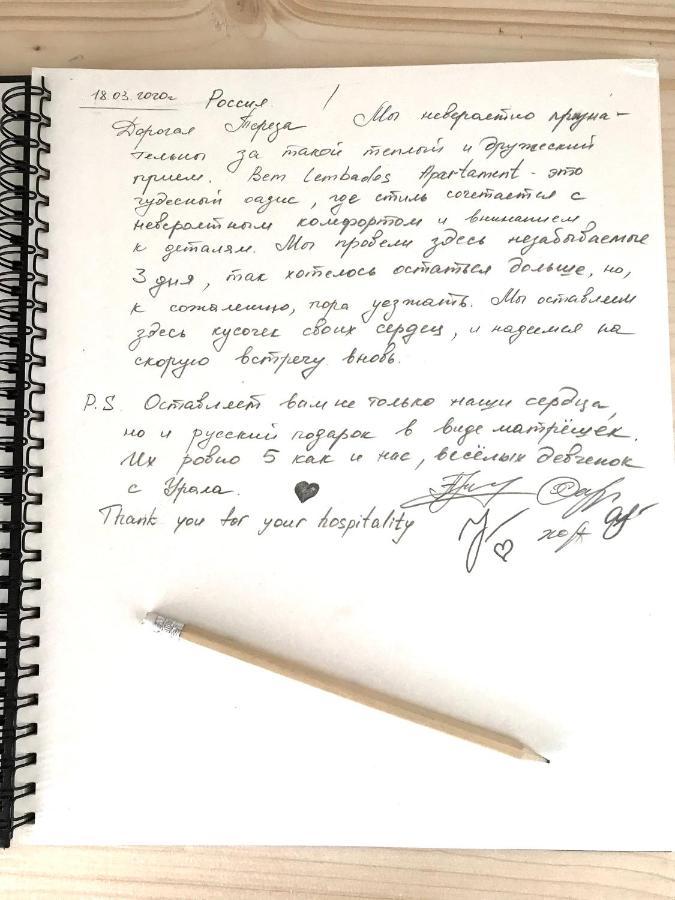 18.03.2020г Россия /
Дорогая Тереза Мы невероятно призна-
тельны за такой теплый и дружеский
прием. Bem Lembados Apartament - это
чудесный оазис, где стиль сочетается с
невероятным комфортом и вниманием
к деталям. Мы провели здесь незабываемые
3 дня, так хотелось остаться дольше, но,
к сожалению, пора уезжать. Мы оставляем
здесь кусочек своих сердец, и надеемся на
скорую встречу вновь.
P.S. Оставляет вам не только наши сердца,
но и русский подарок в виде матрёшек.
Их ровно 5 как и нас, весёлых девченок
с Урала.
Thank you for your hospitality